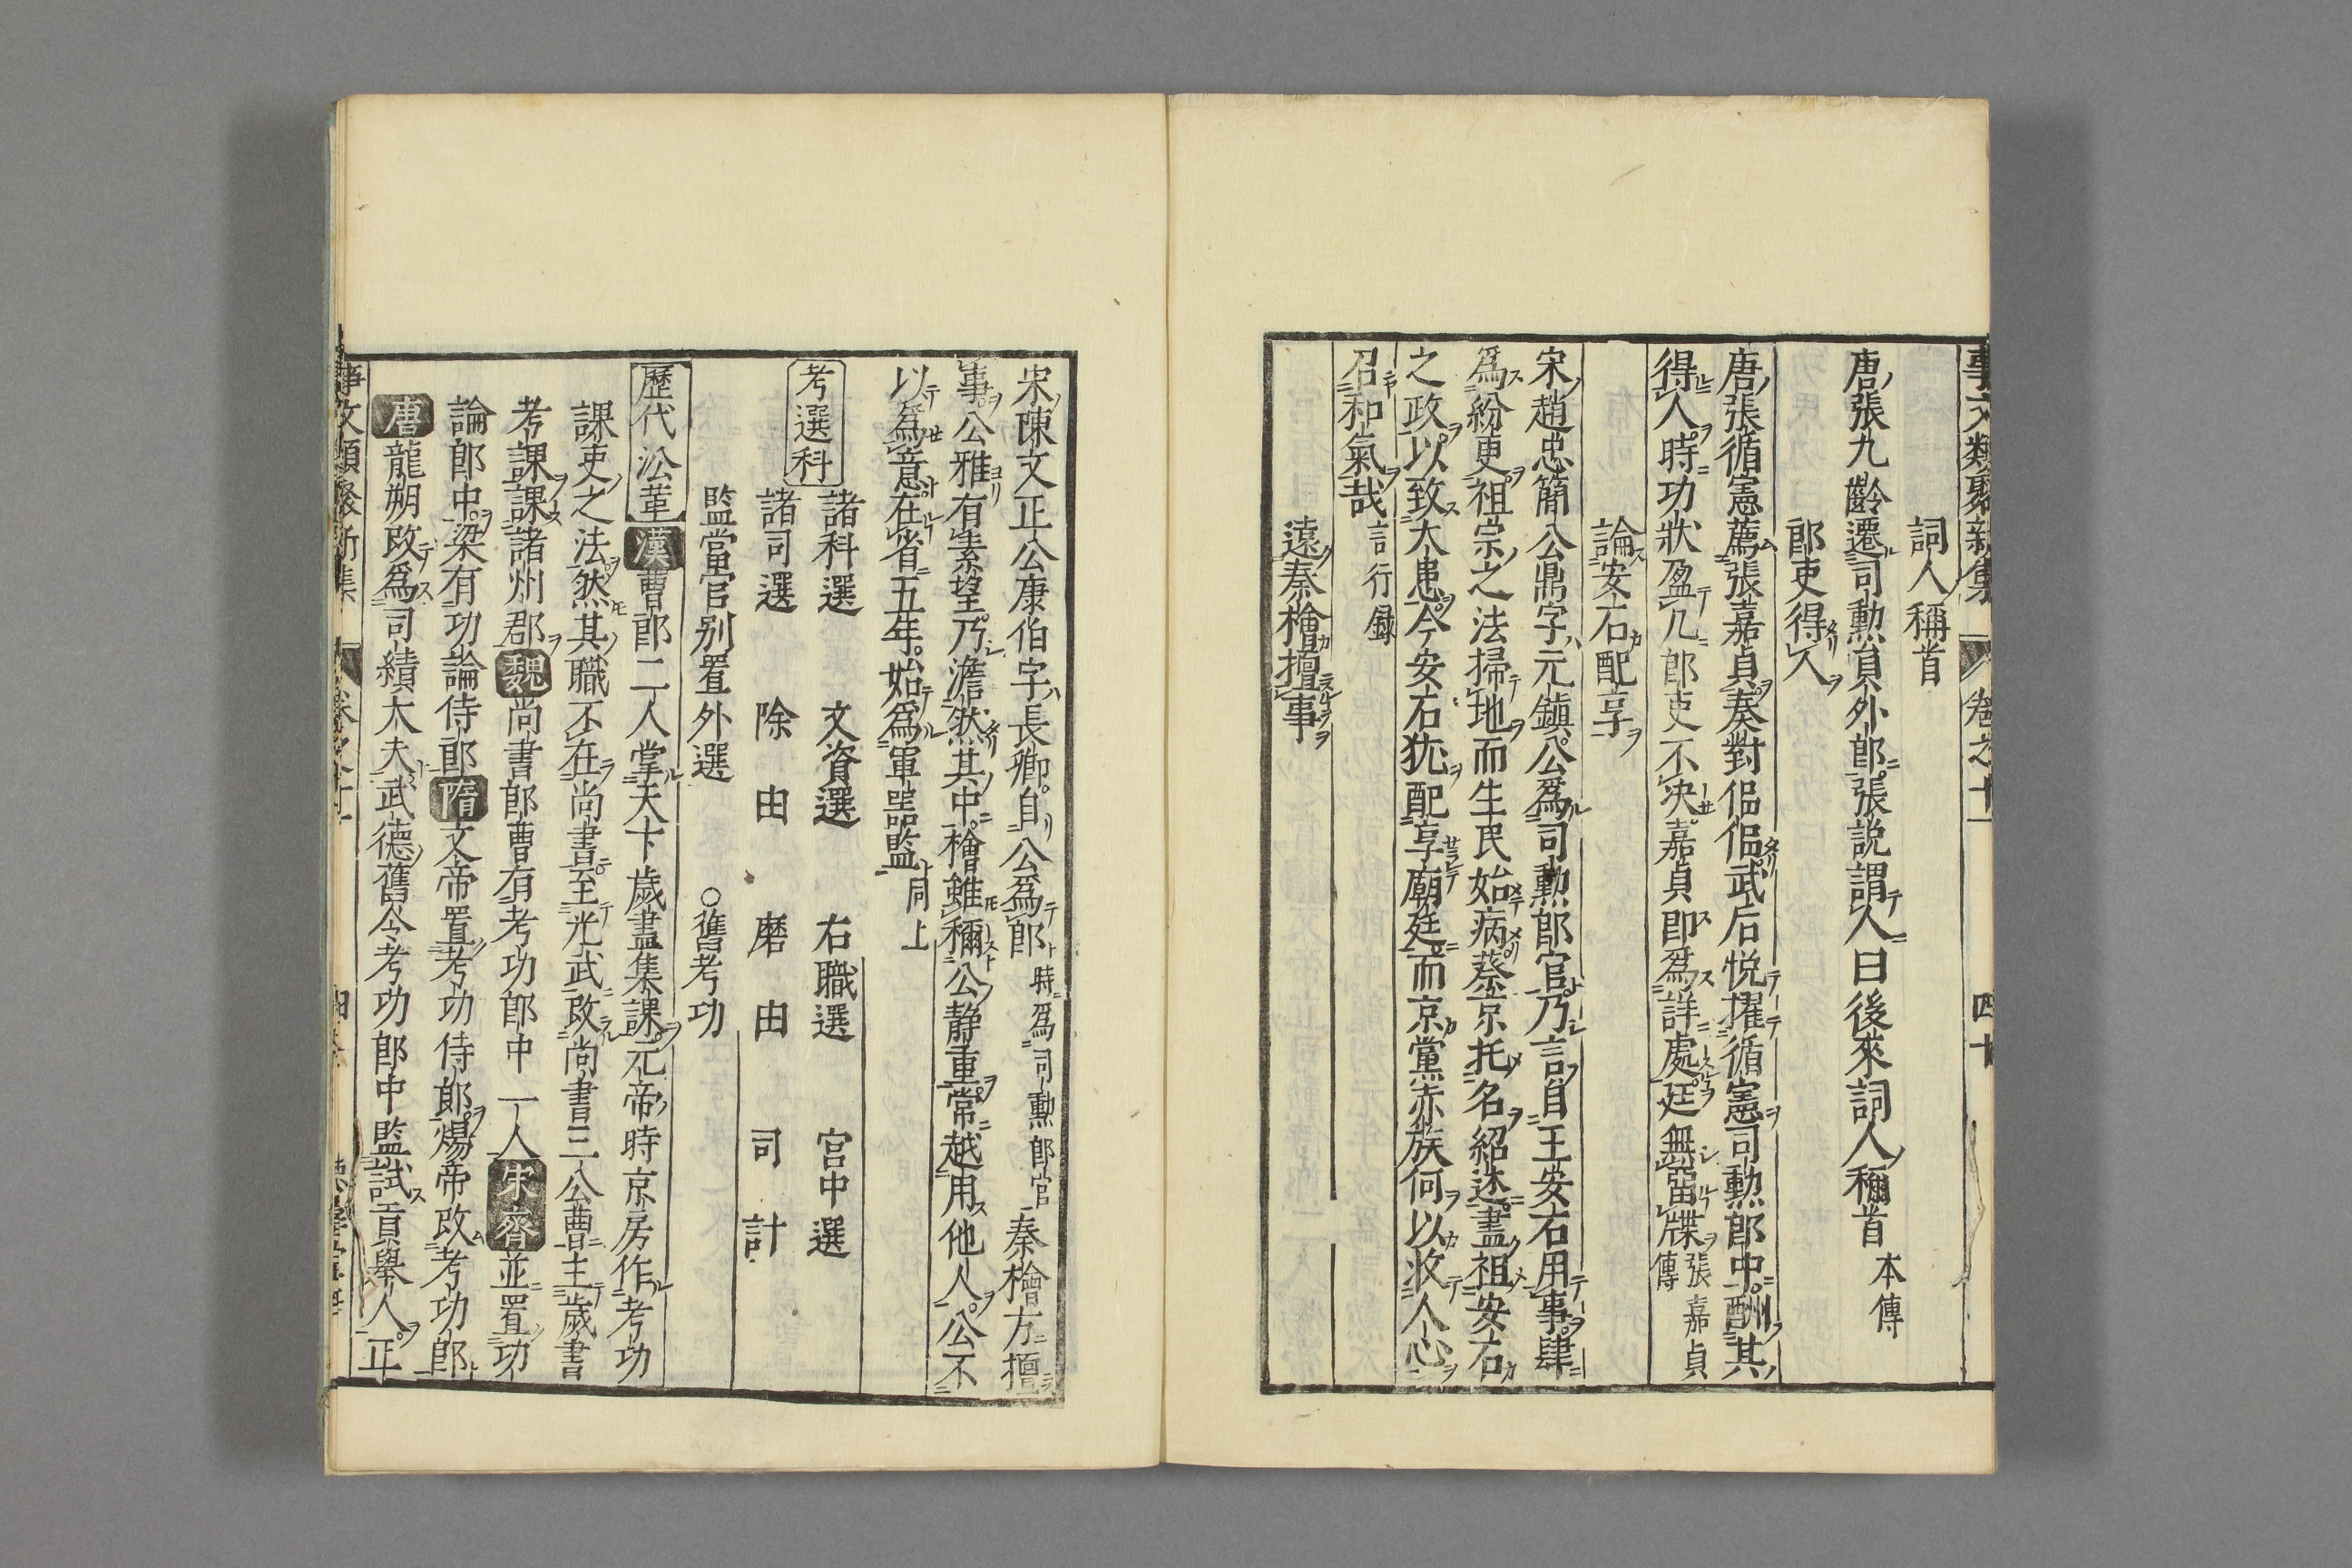 事文類聚新集 卷之十一 四十
詞人稱首
唐張九齡遷司勲貟外郎張説謂人曰後來詞人稱首 本傳
郎吏得人
唐張循憲薦張嘉貞奏對偘偘武后悦擢循憲司勲郎中酬其
得人時功狀盈几郎吏不决嘉貞即爲詳處廷無畱牒 張嘉貞傳
論安石配享
宋趙忠簡公鼎字元鎮公爲司勲郎官乃言自王安石用事肆
爲紛更祖宗之法掃地而生民始病蔡京托名紹述盡祖安石
之政以致大患今安石犹配享廟廷而京黨赤族何以收人心
召和氣哉 言行録
遠秦檜擅事
宋陳文正公康伯字長卿自公爲郎 時爲司勲郎官 秦檜方擅
事公雅有素望乃澹然其中檜雖稱公静重常越用他人公不
以爲意在省五年始爲軍噐監 同上
考選科 諸科選 文資選 右職選 宫中選
諸司選 除由 磨由 司計
監當官别置外選 ○舊考功
歷代沿革 漢曹郎二人掌天下歲盡集課元帝時京房作考功
課吏之法然其職不在尚書至光武改尚書三公曹主歲書
考課課諸州郡魏尚書郎曹有考功郎中一人宋齊並置功
論郎中梁有功論侍郎隋文帝置考功侍郎煬帝改考功郎
唐龍朔改爲司績大夫武德舊令考功郎中監試貢舉人正